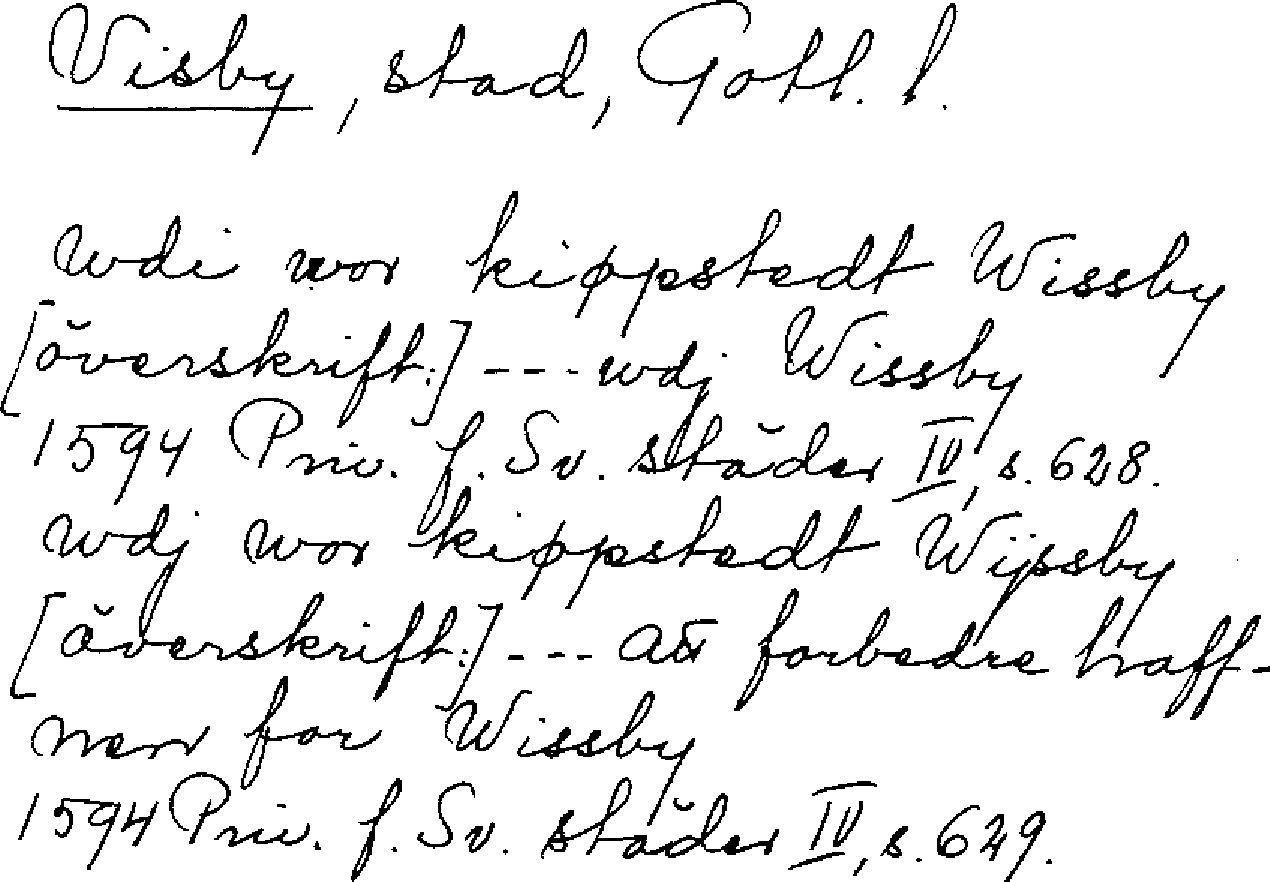 Visby, stad, Gotl. l.
wdi wor kiøpstedt Wissby
[överskift:] --- wdj Wissby
1594 Priv. f. Sv. städer IV, s. 628.
wdj wor kiøpstedt Wijssby
[överskrift:] --- att forbedre haff-
nen for Wissby
1594 Priv. f. Sv. städer IV, s. 629.